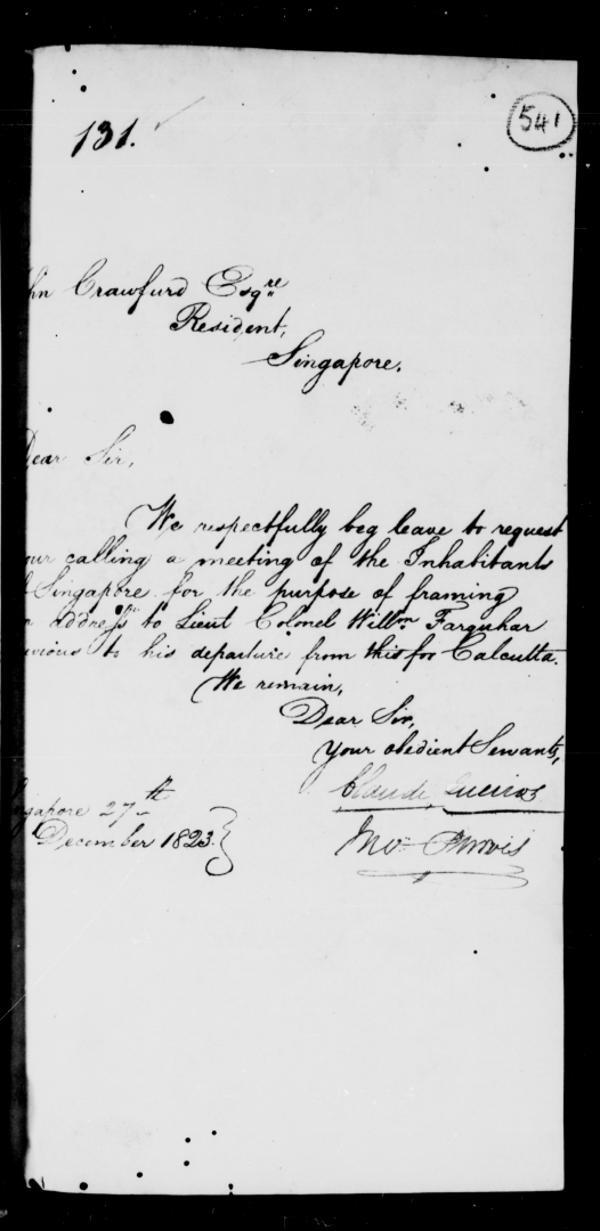 541
131.
hn Crawfurd Esqre
Resident,
Singapore.
Dear Sir,
We respectfully beg leave to request
our calling a meeting of the Inhabitants
f Singapore for the purpose of framing
n address to Lieut Colonel Willm Farquhar
evious to his departure from this for Calcutta.
We remain,
Dear Sir,
Your obedient Servants,
Claude Queiros
ngapore 27th
December 1823.
Jno Purvis